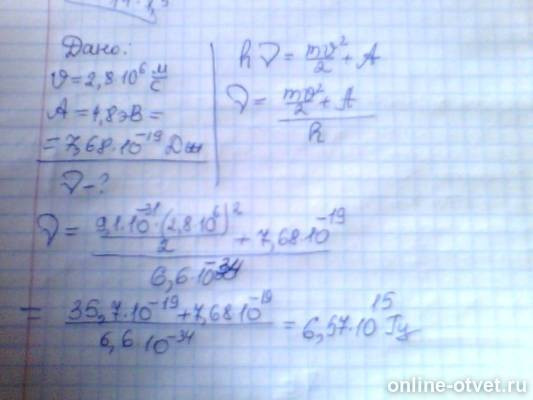 Дано:
υ = 2,8·10⁶ м/с
A = 4,8 эВ =
= 7,68·10⁻¹⁹ Дж
ν - ?
hν = mυ²/2 + A
ν = (mυ²/2 + A)/h
ν = (9,1·10⁻³¹·(2,8·10⁶)²/2 + 7,68·10⁻¹⁹)/(6,6·10⁻³⁴)
= (35,7·10⁻¹⁹ + 7,68·10⁻¹⁹)/(6,6·10⁻³⁴) = 6,57·10¹⁵ Гц
online-otvet.ru